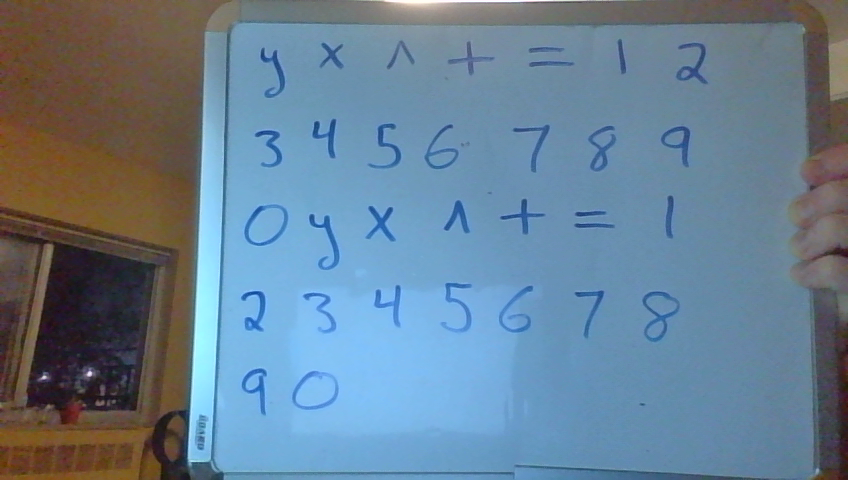 y x ^ + = 1 2
3 4 5 6 7 8 9
0 y x ^ + = 1
2 3 4 5 6 7 8
9 0